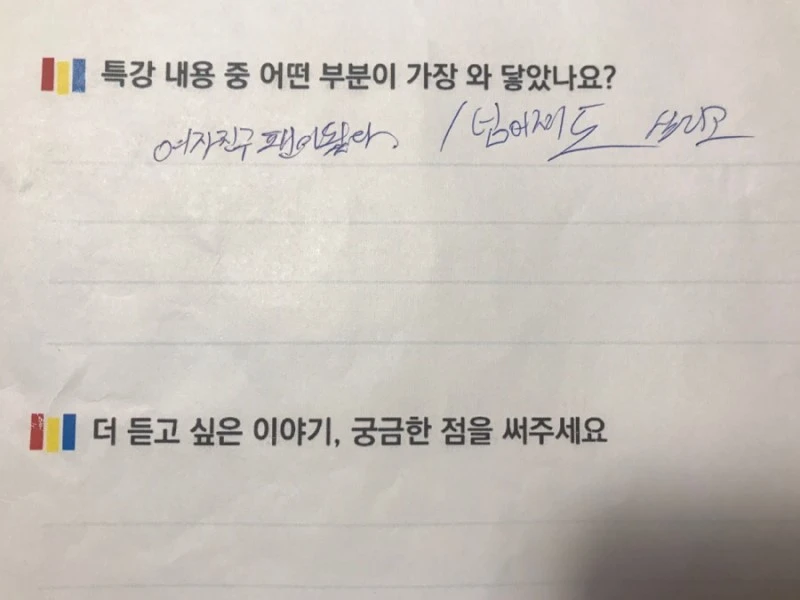 특강 내용 중 어떤 부분이 가장 와 닿았나요?
여자친구 팬이 / 넘어져도
더 듣고 싶은 이야기, 궁금한 점을 써주세요